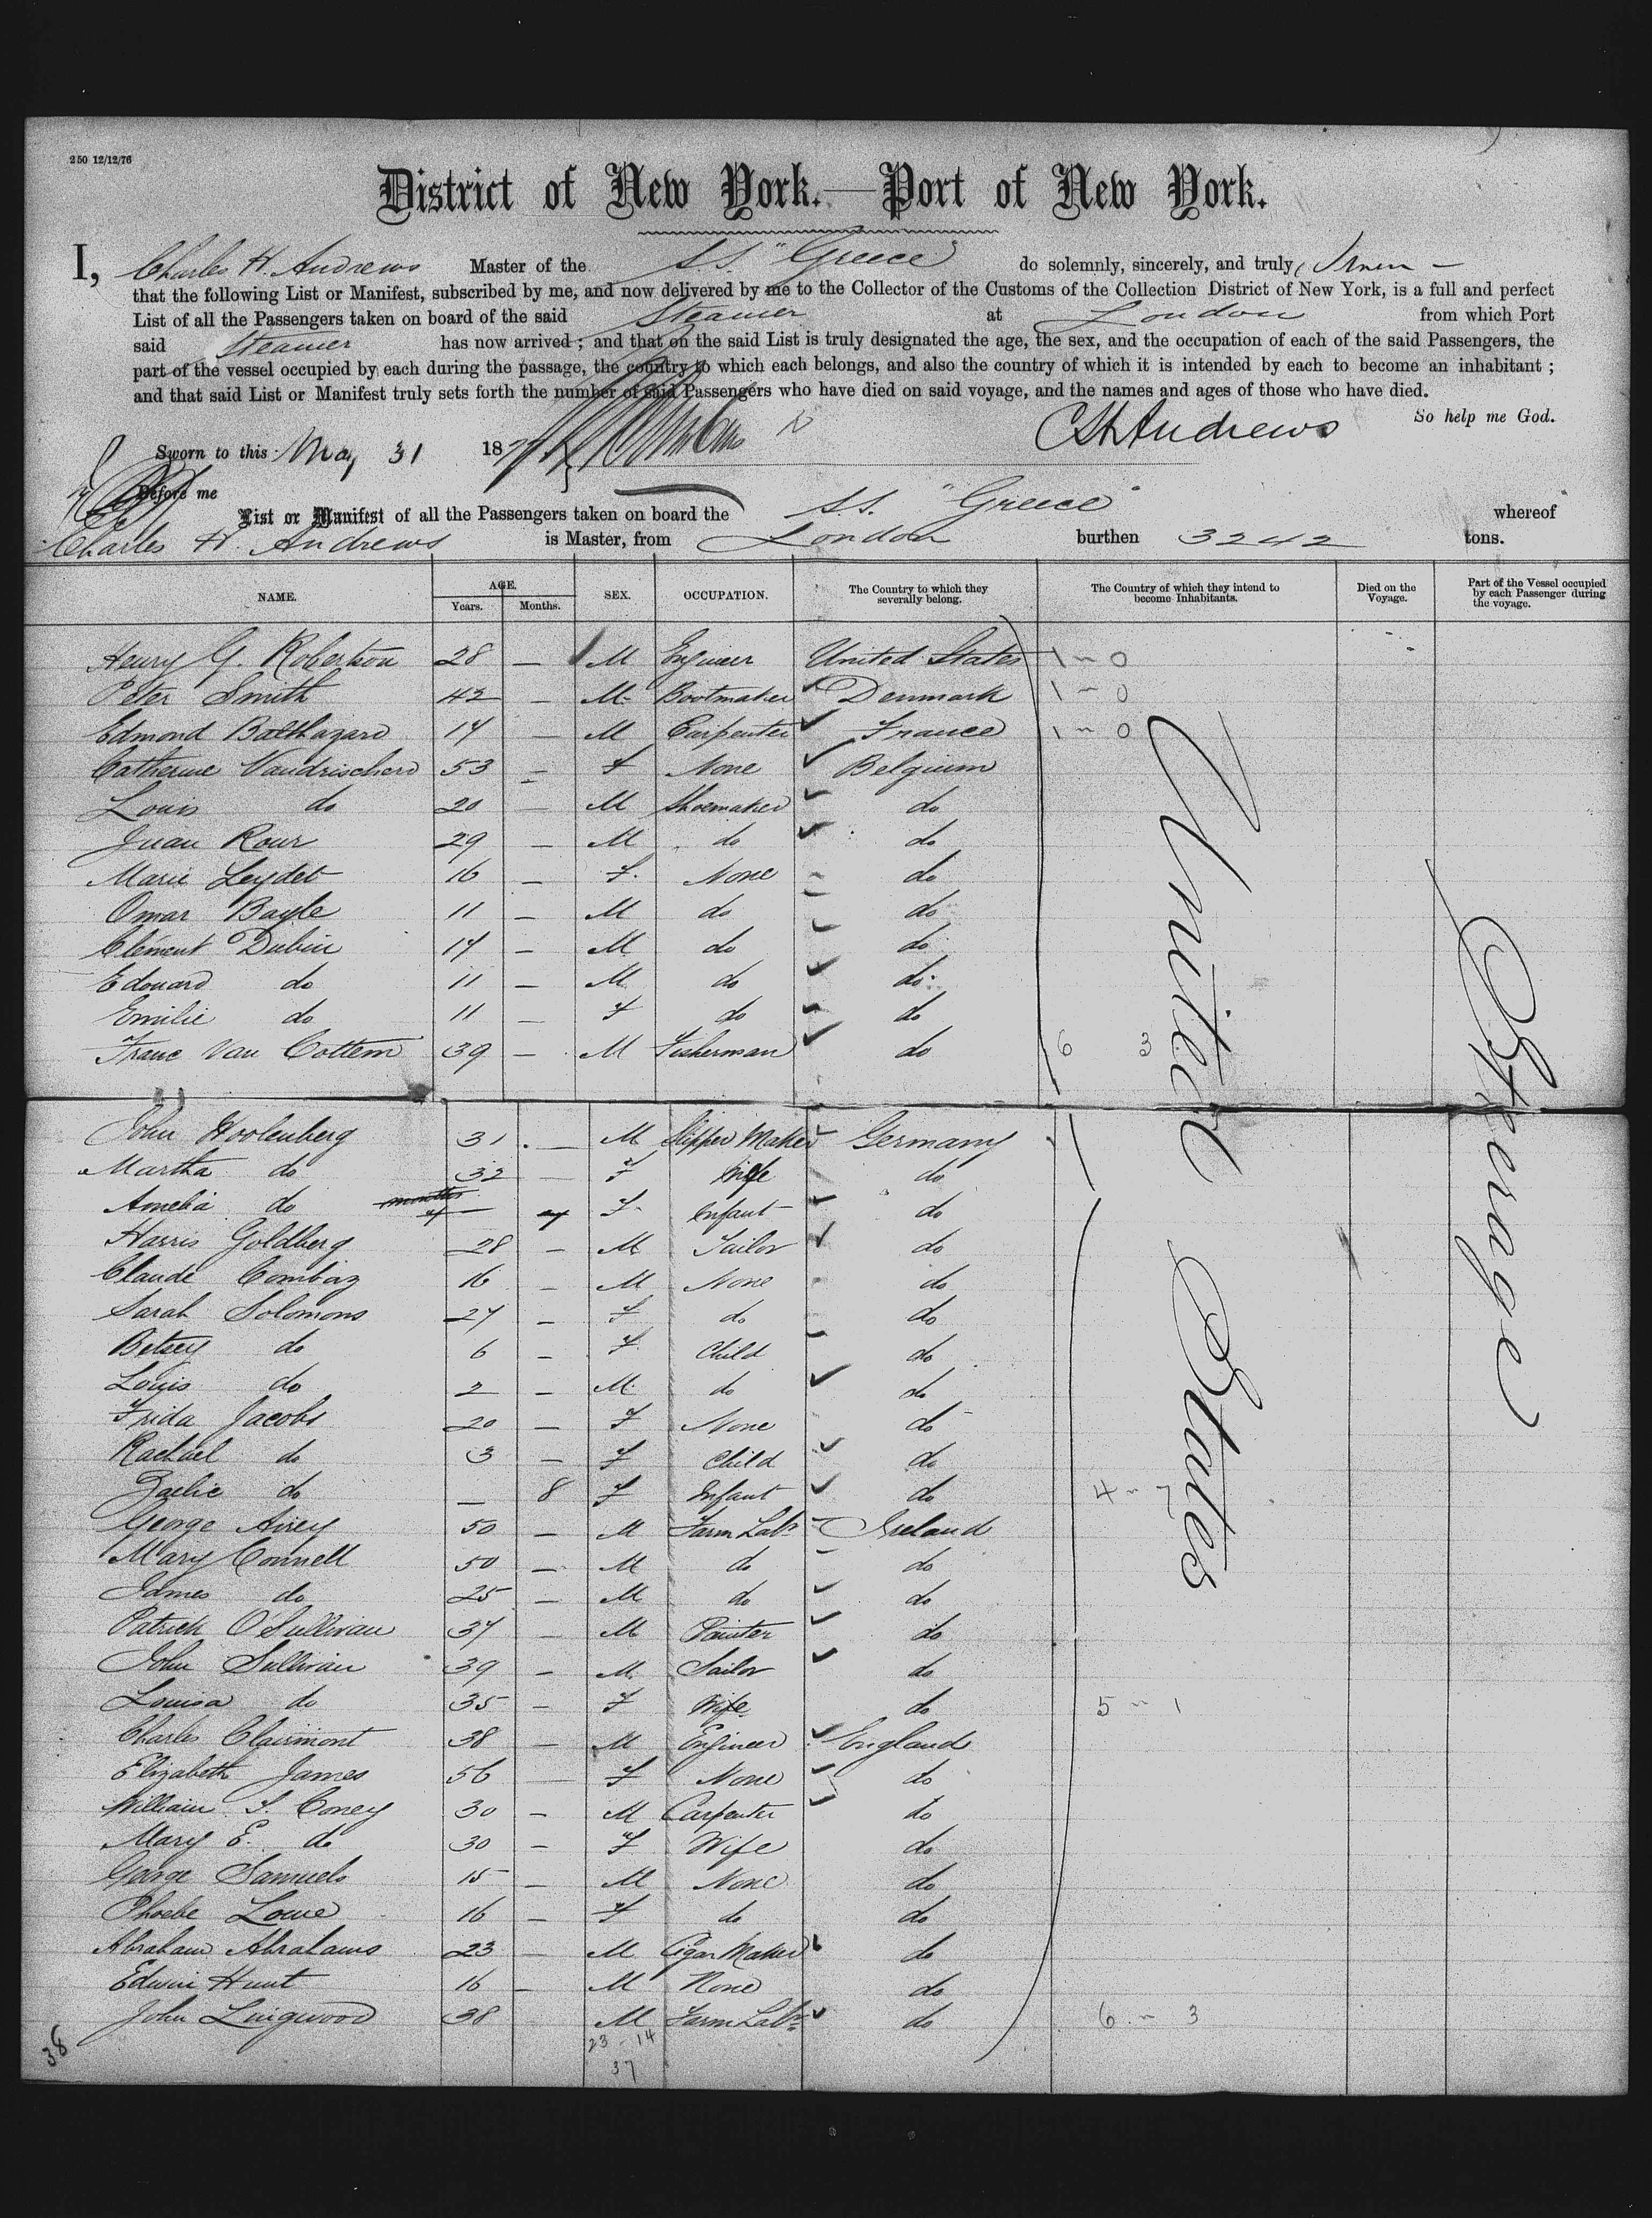 250 12/12/76
District of New York.—Port of New York.
I, Charles H. Andrews Master of the S.S. "Greece" do solemnly, sincerely, and truly
that the following List or Manifest, subscribed by me, and now delivered by me to the Collector of the Customs of the Collection District of New York, is a full and perfect
List of all the Passengers taken on board of the said Steamer at London from which Port
said Steamer has now arrived; and that on the said List is truly designated the age, the sex, and the occupation of each of the said Passengers, the
part of the vessel occupied by each during the passage, the country to which each belongs, and also the country of which it is intended by each to become an inhabitant;
and that said List or Manifest truly sets forth the number of said Passengers who have died on said voyage, and the names and ages of those who have died.
So help me God.
CH Andrews
Sworn to this May 31 187
Before me
List or Manifest of all the Passengers taken on board the S.S. "Greece" whereof
Charles H. Andrews is Master, from London burthen 3242 tons.
NAME. AGE. Years. Months. SEX. OCCUPATION. The Country to which they severally belong. The Country of which they intend to become Inhabitants. Died on the Voyage. Part of the Vessel occupied by each Passenger during the voyage.
Henry G. Robertson 28 — M Engineer United States 1 ~ 0
Peter Smith 42 — M Bootmaker Denmark 1 ~ 0
Edmond Balthazard 14 — M Carpenter France 1 ~ 0
Catherine Vandrischerd 53 — F None Belgium
Louis do 20 — M Shoemaker do
Juan Rour 29 — M do do
Marie Leydet 16 — F. None do
Omar Bayle 11 — M do do
Clement Dubin 14 — M do do
Edouard do 11 — M do do
Emilie do 11 — F do do
Franc Van Cottem 39 — M Fisherman do 6 3
John Hoolenberg 31 — M Slipper Maker Germany
Martha do 32 — F Wife do
Amelia do — F Infant do
Harris Goldberg 28 — M Tailor do
Claude Combaz 16 — M None do
Sarah Solomons 27 — F do do
Betsey do 6 — F Child do
Louis do 2 — M do do
Frida Jacobs 20 — F None do
Rachael do 3 — F Child do
Zaelie do — 8 F Infant do 4 ~ 7
George Airey 50 — M Farm Labr Ireland
Mary Connell 50 — M do do
James do 25 — M do do
Patrick O'Sullivan 37 — M Painter do
John Sullivan 39 — M Sailor do
Louisa do 35 — F Wife do 5 ~ 1
Charles Clairmont 38 — M Engineer England
Elizabeth James 56 — F None do
William S. Coney 30 — M Carpenter do
Mary E. do 30 — F Wife do
George Samuels 15 — M None do
Phoebe Lowe 16 — F do do
Abraham Abrahams 23 — M Cigar Maker do
Edwin Hunt 16 — M None do
John Lingwood 38 M Farm Labr do 6 ~ 3
United States
Steerage
23 - 14
37
38